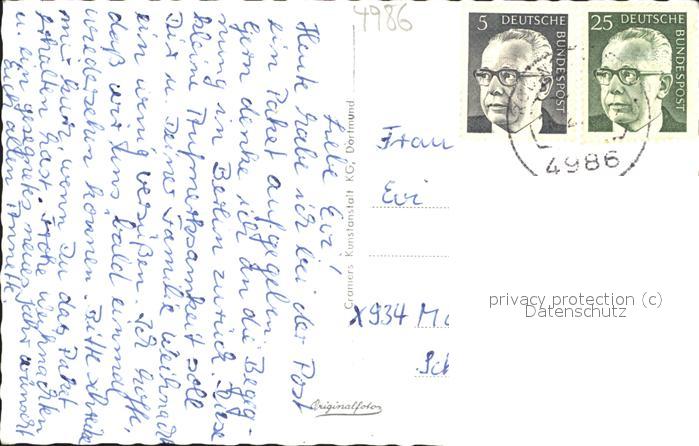 4986
5 DEUTSCHE
BUNDESPOST
25 DEUTSCHE
BUNDESPOST
4986
Liebe Evi!
Heute habe ich bei der Post
ein Paket aufgegeben.
Gern denke ich an die Begeg-
nung in Berlin zurück. Diese
kleine Aufmerksamkeit soll
Dir u. Deine Familie Weihnacht
ein wenig versüßen. Ich hoffe,
daß wir uns bald einmal
wiedersehn können. Bitte schreibe
mir kurz, wenn Du das Paket
erhalten hast. Frohe Weihnachten
u. ein gesegnetes neues Jahr wünscht
Cramers Kunstanstalt KG, Dortmund
Originalfoto
Frau
Evi
X934
privacy protection (c)
Datenschutz